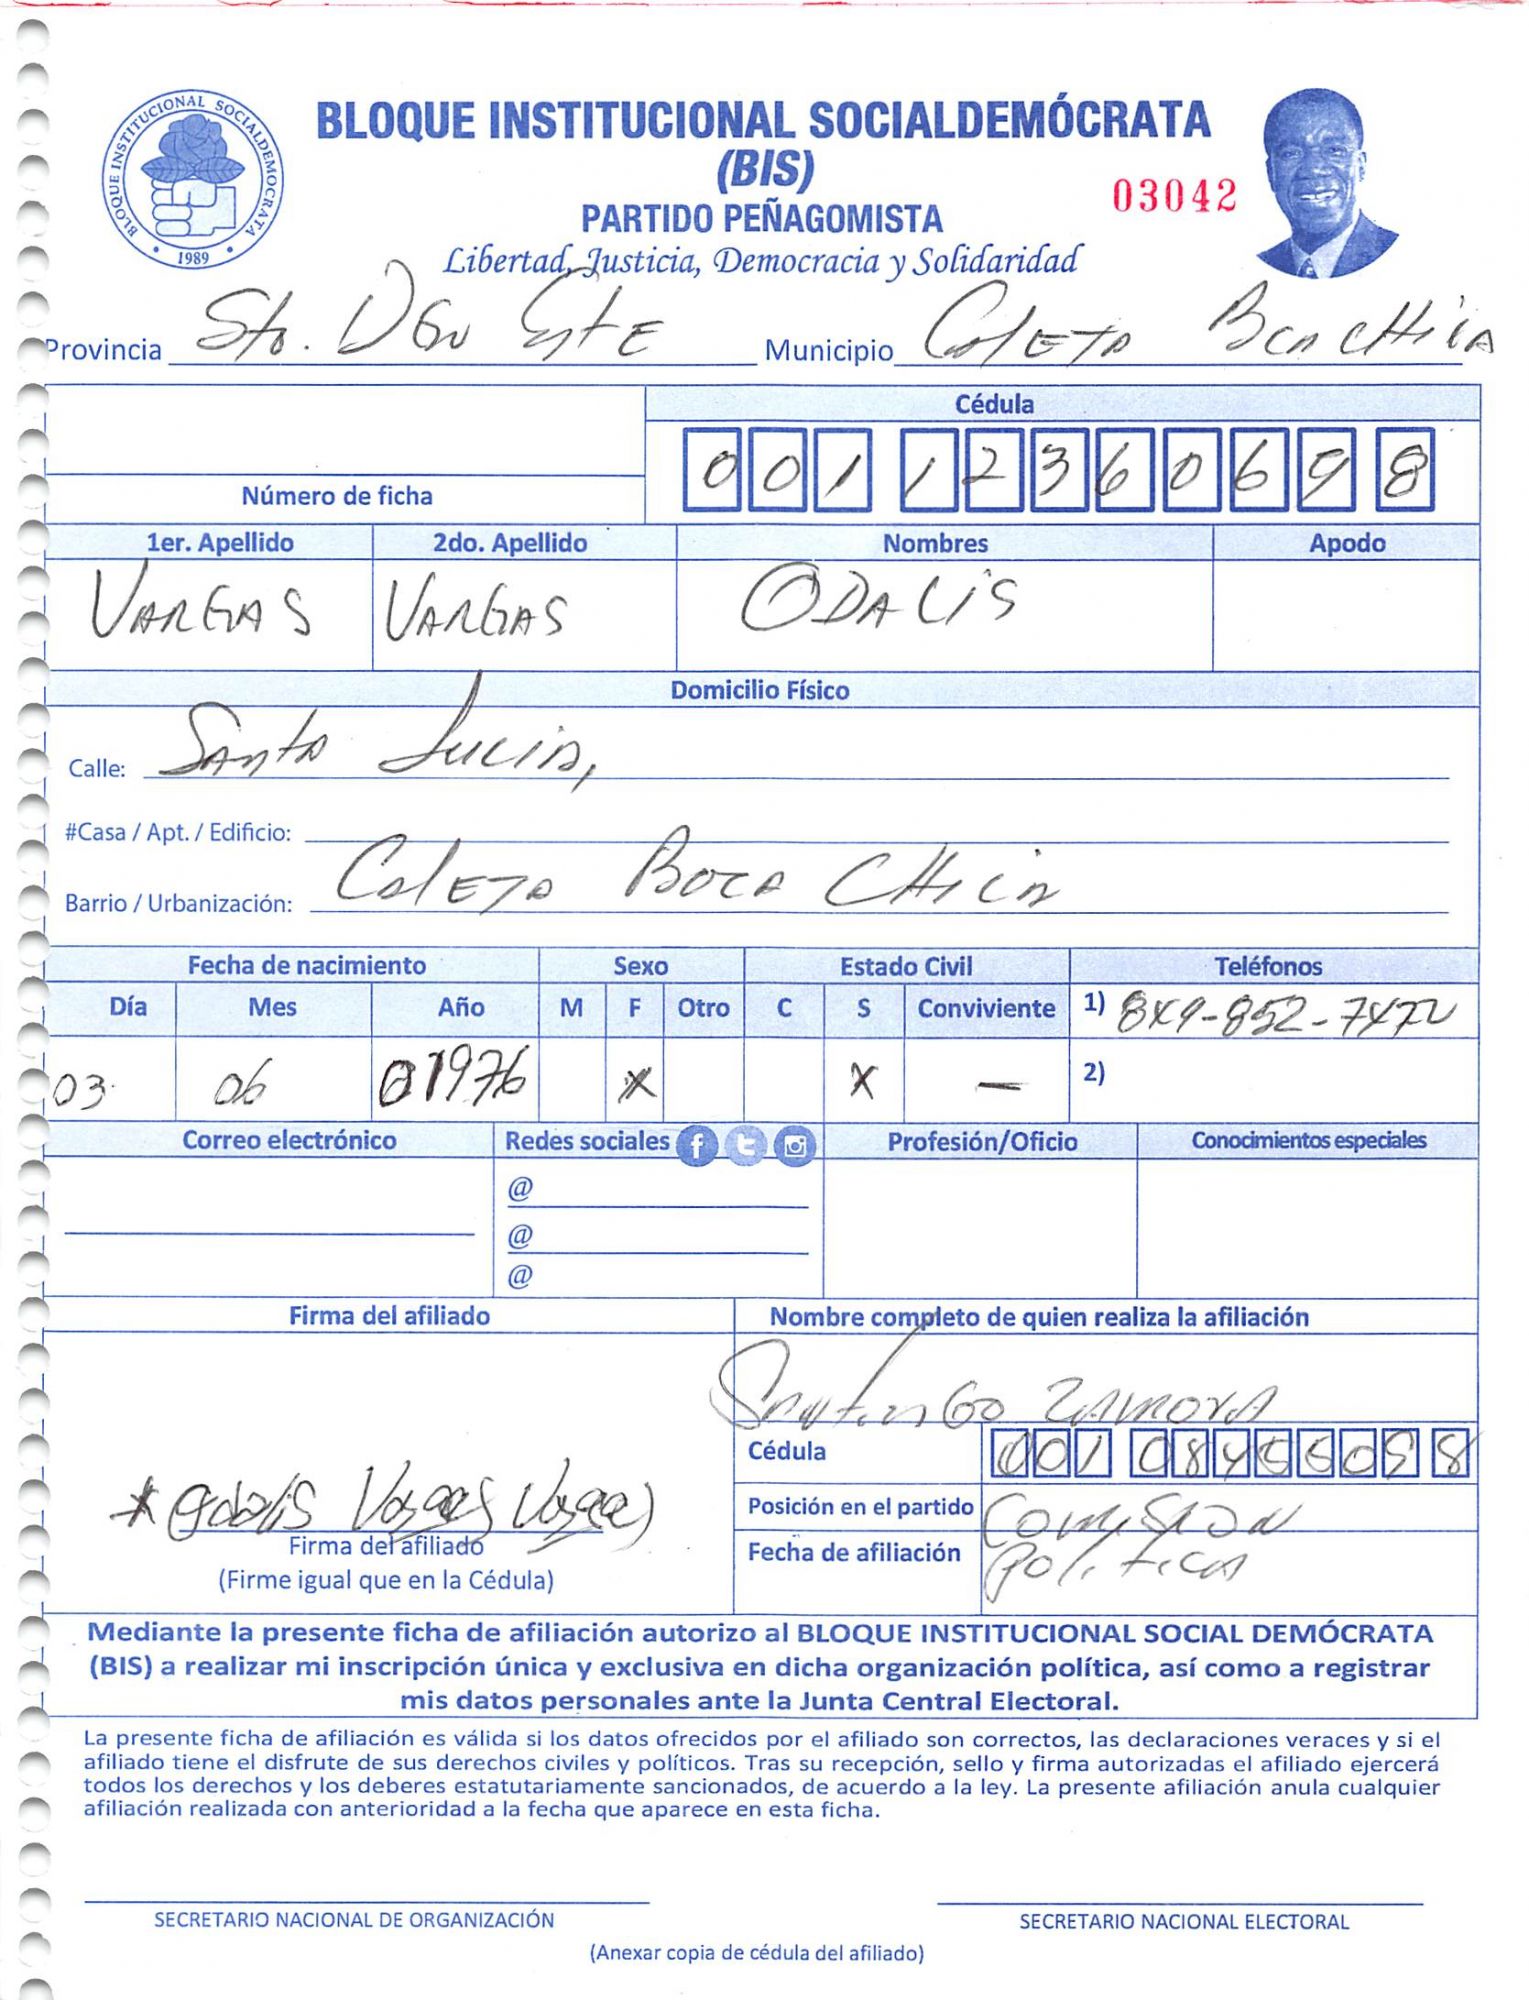 BLOQUE INSTITUCIONAL SOCIALDEMOCRATA
1989
BLOQUE INSTITUCIONAL SOCIALDEMÓCRATA
(BIS)
PARTIDO PEÑAGOMISTA
03042
Libertad, Justicia, Democracia y Solidaridad
Provincia Sto. Dgo Este Municipio Caleta Boca CHica
Cédula
001 1236069 8
Número de ficha
1er. Apellido 2do. Apellido Nombres Apodo
VARGAS VARGAS ODALIS
Domicilio Físico
Calle: Santa Lucia,
#Casa / Apt. / Edificio:
Barrio / Urbanización: Caleta Boca CHica
Fecha de nacimiento Sexo Estado Civil Teléfonos
Día Mes Año M F Otro C S Conviviente 1) 849-852-7472
03 06 01976 X X — 2)
Correo electrónico Redes sociales f t Profesión/Oficio Conocimientos especiales
@
@
@
Firma del afiliado Nombre completo de quien realiza la afiliación
Santiago ZAMORA
Cédula 001 0845509 8
* Odalis Vargas Vargas
Posición en el partido Comision
Firma del afiliado
Fecha de afiliación Politica
(Firme igual que en la Cédula)
Mediante la presente ficha de afiliación autorizo al BLOQUE INSTITUCIONAL SOCIAL DEMÓCRATA
(BIS) a realizar mi inscripción única y exclusiva en dicha organización política, así como a registrar
mis datos personales ante la Junta Central Electoral.
La presente ficha de afiliación es válida si los datos ofrecidos por el afiliado son correctos, las declaraciones veraces y si el
afiliado tiene el disfrute de sus derechos civiles y políticos. Tras su recepción, sello y firma autorizadas el afiliado ejercerá
todos los derechos y los deberes estatutariamente sancionados, de acuerdo a la ley. La presente afiliación anula cualquier
afiliación realizada con anterioridad a la fecha que aparece en esta ficha.
SECRETARIO NACIONAL DE ORGANIZACIÓN SECRETARIO NACIONAL ELECTORAL
(Anexar copia de cédula del afiliado)